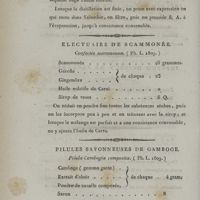 Lorsque la distillation est finie, on passe avec expression ce
qui reste dans l'alambic, ou filtre, puis on procède S. A. à
l'évaporation, jusqu'à consistance convenable.
ELECTUAIRE DE SCAMMONÉE.
Confectio scammoneæ. (Ph. L. 1809.)
Scammonée 48 grammes.
Gérofle
Gingembre
de chaque
Huile volatile de Carvi
Sirop de roses S. Q.
On réduit en poudre fine toutes les substances sèches, puis
on les incorpore peu à peu et en triturant avec le sirop; et
lorsque le mélange est parfait et a une consistance convenable,
on y ajoute l'huile de Carvi.
PILULES SAVONNEUSES DE GAMBOGE.
Pilulæ Cambogiæ compositæ. (Ph. L. 1809.)
Cambogé (gomme gutte)
Extrait d'aloès
de chaque 4 gram.
Poudre de cannelle composée
Savon 8